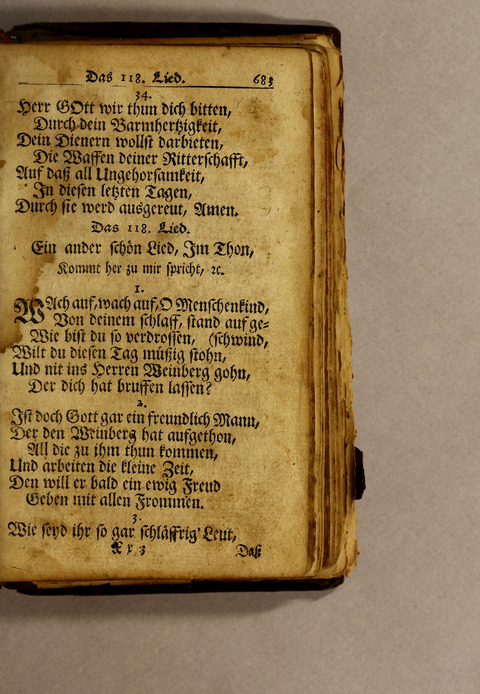 Das 118. Lied. 683
34.
Herr GOtt wir thun dich bitten,
Durch dein Barmhertzigkeit,
Dein Dienern wollst darbieten,
Die Waffen deiner Ritterschafft,
Auf daß all Ungehorsamkeit,
In diesen letzten Tagen,
Durch sie werd ausgereut, Amen.
Das 118. Lied.
Ein ander schön Lied, Im Thon,
Kommt her zu mir spricht, ꝛc.
1.
WAch auf, wach auf, O Menschenkind,
Von deinem schlaff, stand auf ge-
Wie bist du so verdrossen, (schwind,
Wilt du diesen Tag müßig stohn,
Und nit ins Herren Weinberg gohn,
Der dich hat bruffen lassen?
2.
Ist doch Gott gar ein freundlich Mann,
Der den Weinberg hat aufgethon,
All die zu ihm thun kommen,
Und arbeiten die kleine Zeit,
Den will er bald ein ewig Freud
Geben mit allen Frommen.
3.
Wie seyd ihr so gar schläffrig Leut,
Xx 3 Daß